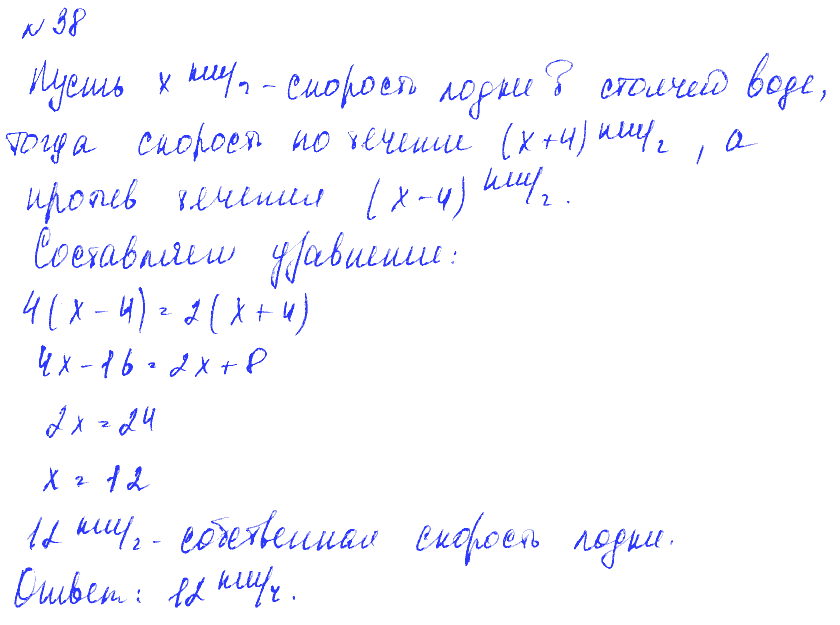 № 38
Пусть x км/ч - скорость лодки в стоячей воде,
тогда скорость по течение (x+4) км/ч, а
против течения (x-4) км/ч.
Составляем уравнение:
4(x-4)=2(x+4)
4x-16=2x+8
2x=24
x=12
12 км/ч - собственная скорость лодки.
Ответ: 12 км/ч.